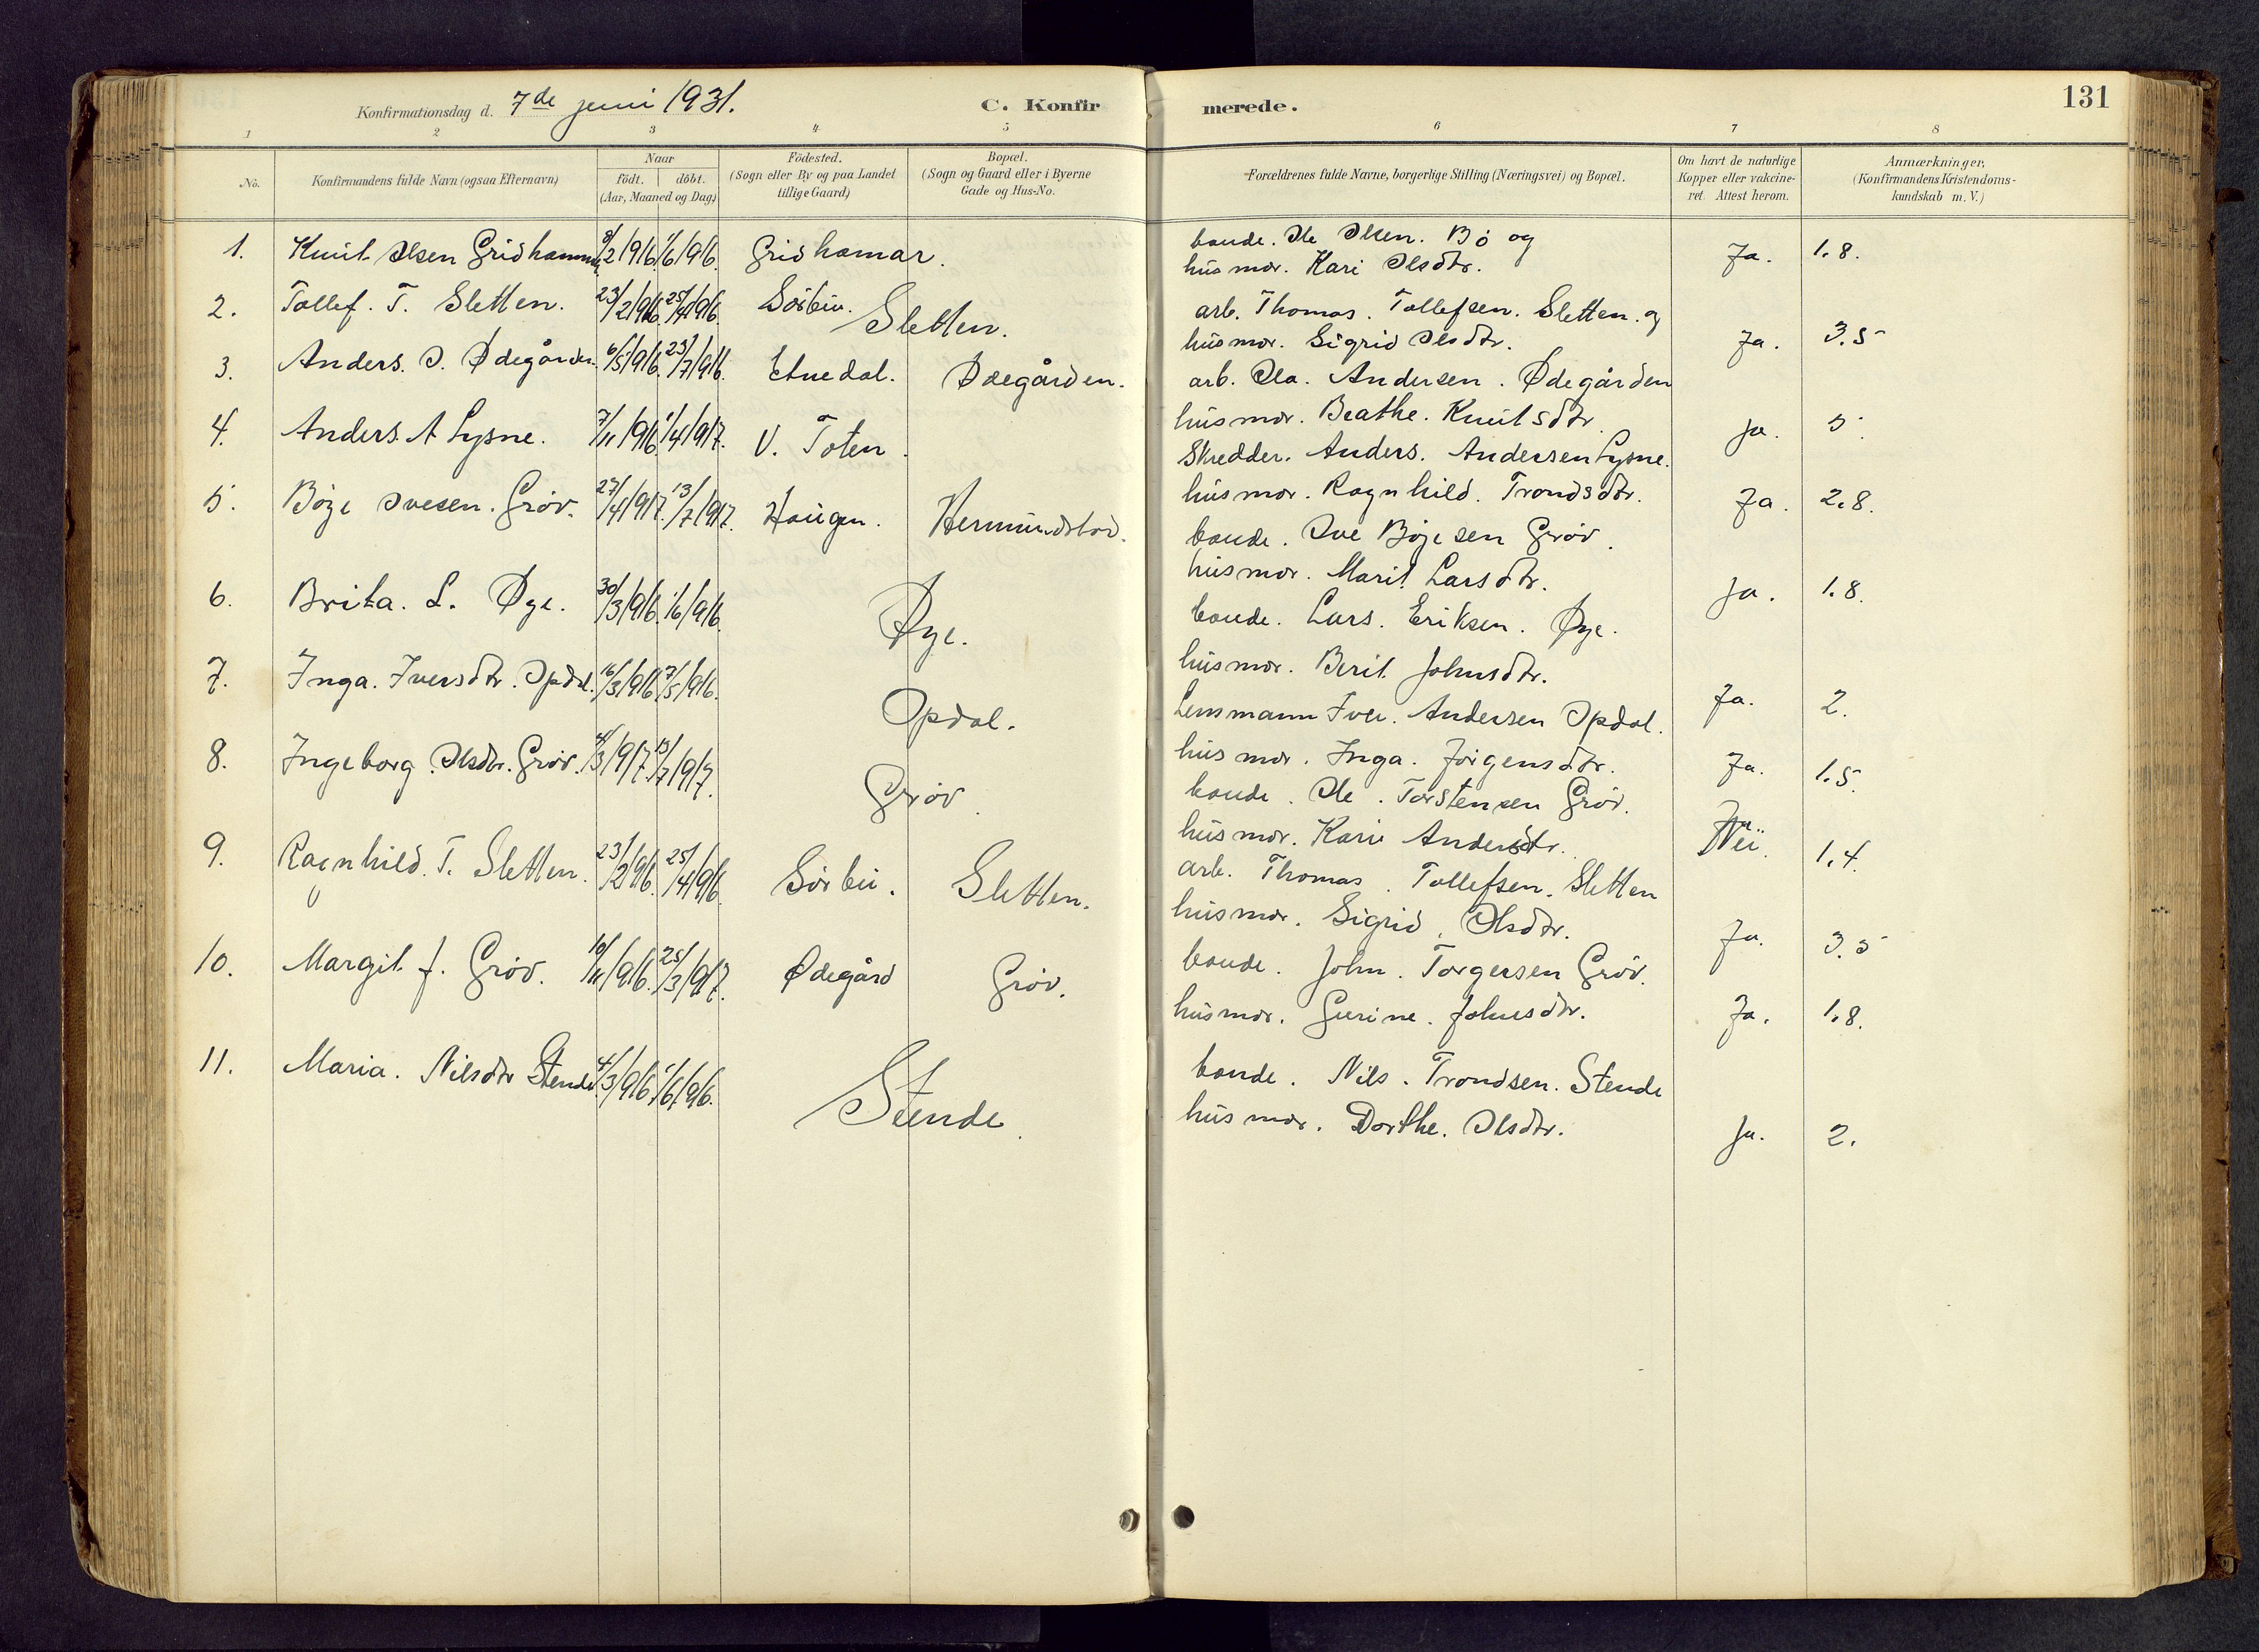 131
Konfirmationsdag d. 7de juni 1931. C. Konfirmerede.
1 2 3 4 5 6 7 8
No.
Konfirmandens fulde Navn (ogsaa Efternavn)
Naar
födt. döbt.
(Aar, Maaned og Dag)
Födested.
(Sogn eller By og paa Landet
tillige Gaard)
Bopæl.
(Sogn og Gaard eller i Byerne
Gade og Hus-No.
Forældrenes fulde Navne, borgerlige Stilling (Næringsvei) og Bopæl.
Om havt de naturlige
Kopper eller vakcine-
ret. Attest herom.
Anmærkninger,
(Konfirmandens Kristendoms-
kundskab m. V.)
1. Knut Olsen Gridhammer 8/2 1916. 1/6 1916. Gridhamar.
bonde. Ole Olsen. Bö og
husmor. Kari Olsdtr. Ja. 1.8.
2. Tollef. T. Sletten. 23/2 1916. 25/4 1916. Sörbu. Sletten.
arb. Thomas. Tollefsen. Sletten. og
husmor. Sigrid Olsdtr. Ja. 3.5
3. Anders. O. Ødegården. 6/5 1916. 23/7 1916. Etnedal. Ødegården.
arb. Ola. Andersen. Ødegården
husmor. Beathe. Knutsdtr. Ja. 5.
4. Anders. A Lysne. 7/11 1916. 1/4 1917. V. Toten.
Skredder. Anders. Andersen Lysne.
husmor. Ragnhild. Trondsdtr. Ja. 2.8.
5. Böje Ovesen. Gröv. 27/4 1917. 13/7 1917. Haugen. Hermundstad.
bonde. Ove Böjesen Gröv.
husmor. Marit Larsdtr. Ja. 1.8.
6. Brita. L. Øye. 30/3 1916. 1/6 1916. Øye.
bonde. Lars. Eriksen. Øye.
husmor. Berit Johnsdtr. Ja. 2.
7. Inga. Iversdtr. Opdal. 16/3 1916. 7/5 1916. Opdal.
Lensmann Iver. Andersen Opdal.
husmor. Inga. Jörgensdtr. Ja. 1.5.
8. Ingeborg. Olsdtr. Gröv. 4/3 1917. 13/7 1917. Gröv.
bonde. Ole. Torstensen Gröv.
husmor. Kari Andersdtr. Nei. 1.4.
9. Ragnhild. T. Sletten. 23/2 1916. 25/4 1916. Sörbu. Sletten.
arb. Thomas. Tollefsen. Sletten
husmor. Sigrid. Olsdtr. Ja. 3.5
10. Margit J. Gröv. 10/11 1916. 25/3 1917. Ødegård Gröv.
bonde. John. Torgersen Gröv.
husmor. Gurine. Johnsdtr. Ja. 1.8.
11. Maria. Nilsdtr Stende. 4/3 1916. 1/6 1916. Stende.
bonde. Nils. Trondsen. Stende
husmor. Dorthe. Olsdtr. Ja. 2.